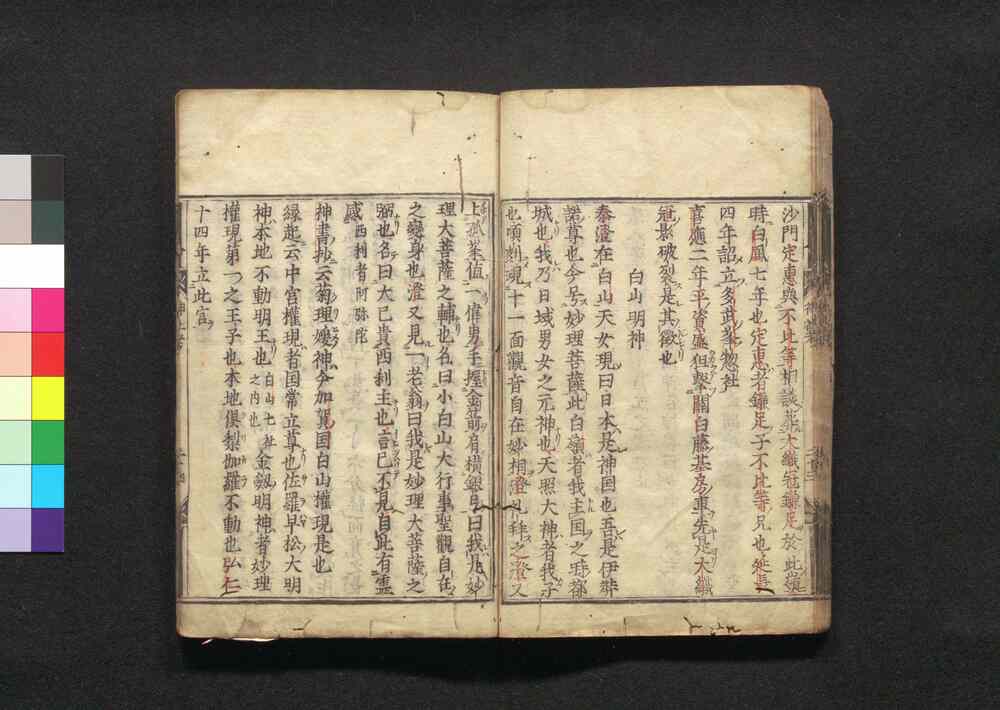 沙門定惠與不比等相議葬大織冠鎌足於此嶺
時白鳳七年也定惠者鎌足子不比等兄也延長
四年詔立多武峯惣社
喜應二年平資盛狙擊關白藤基房車先是大織
冠影破裂是其徵也
白山明神
泰澄在白山天女現曰日本是神国也吾是伊弉
諾尊也今号妙理菩薩此白嶺者我主国之時都
城也我乃日域男女之元神也天照大神者我子
也頃刻現十一面觀音自在妙相澄凡拜之澄又
上孤峯值一偉男手握金箭肩橫銀弓曰我是妙
理大菩薩之輔也名曰小白山大行事聖觀自在
之變身也澄又見一老翁曰我是妙理大菩薩之
弼也名曰大己貴西刹主也言已不見自此有霊
感西刹者阿弥陀
神書抄云菊理媛神今加賀国白山權現是也
緣起云中宮權現者国常立尊也佐羅早松大明
神本地不動明王也白山七社之内也金劔明神者妙理
權現第一之王子也本地俱梨伽羅不動也弘仁
十四年立此宮